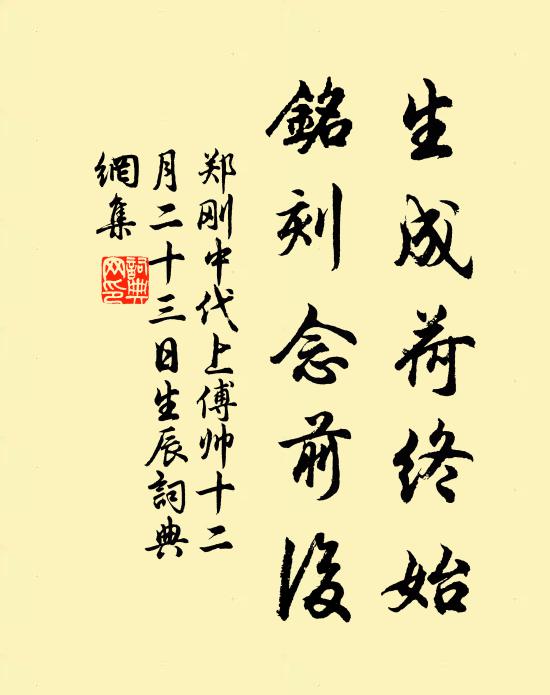 生成荷终始
銘刻念前後
郑刚中代上傅帅十二
月二十三日生辰詞典
網集
詞典
网印